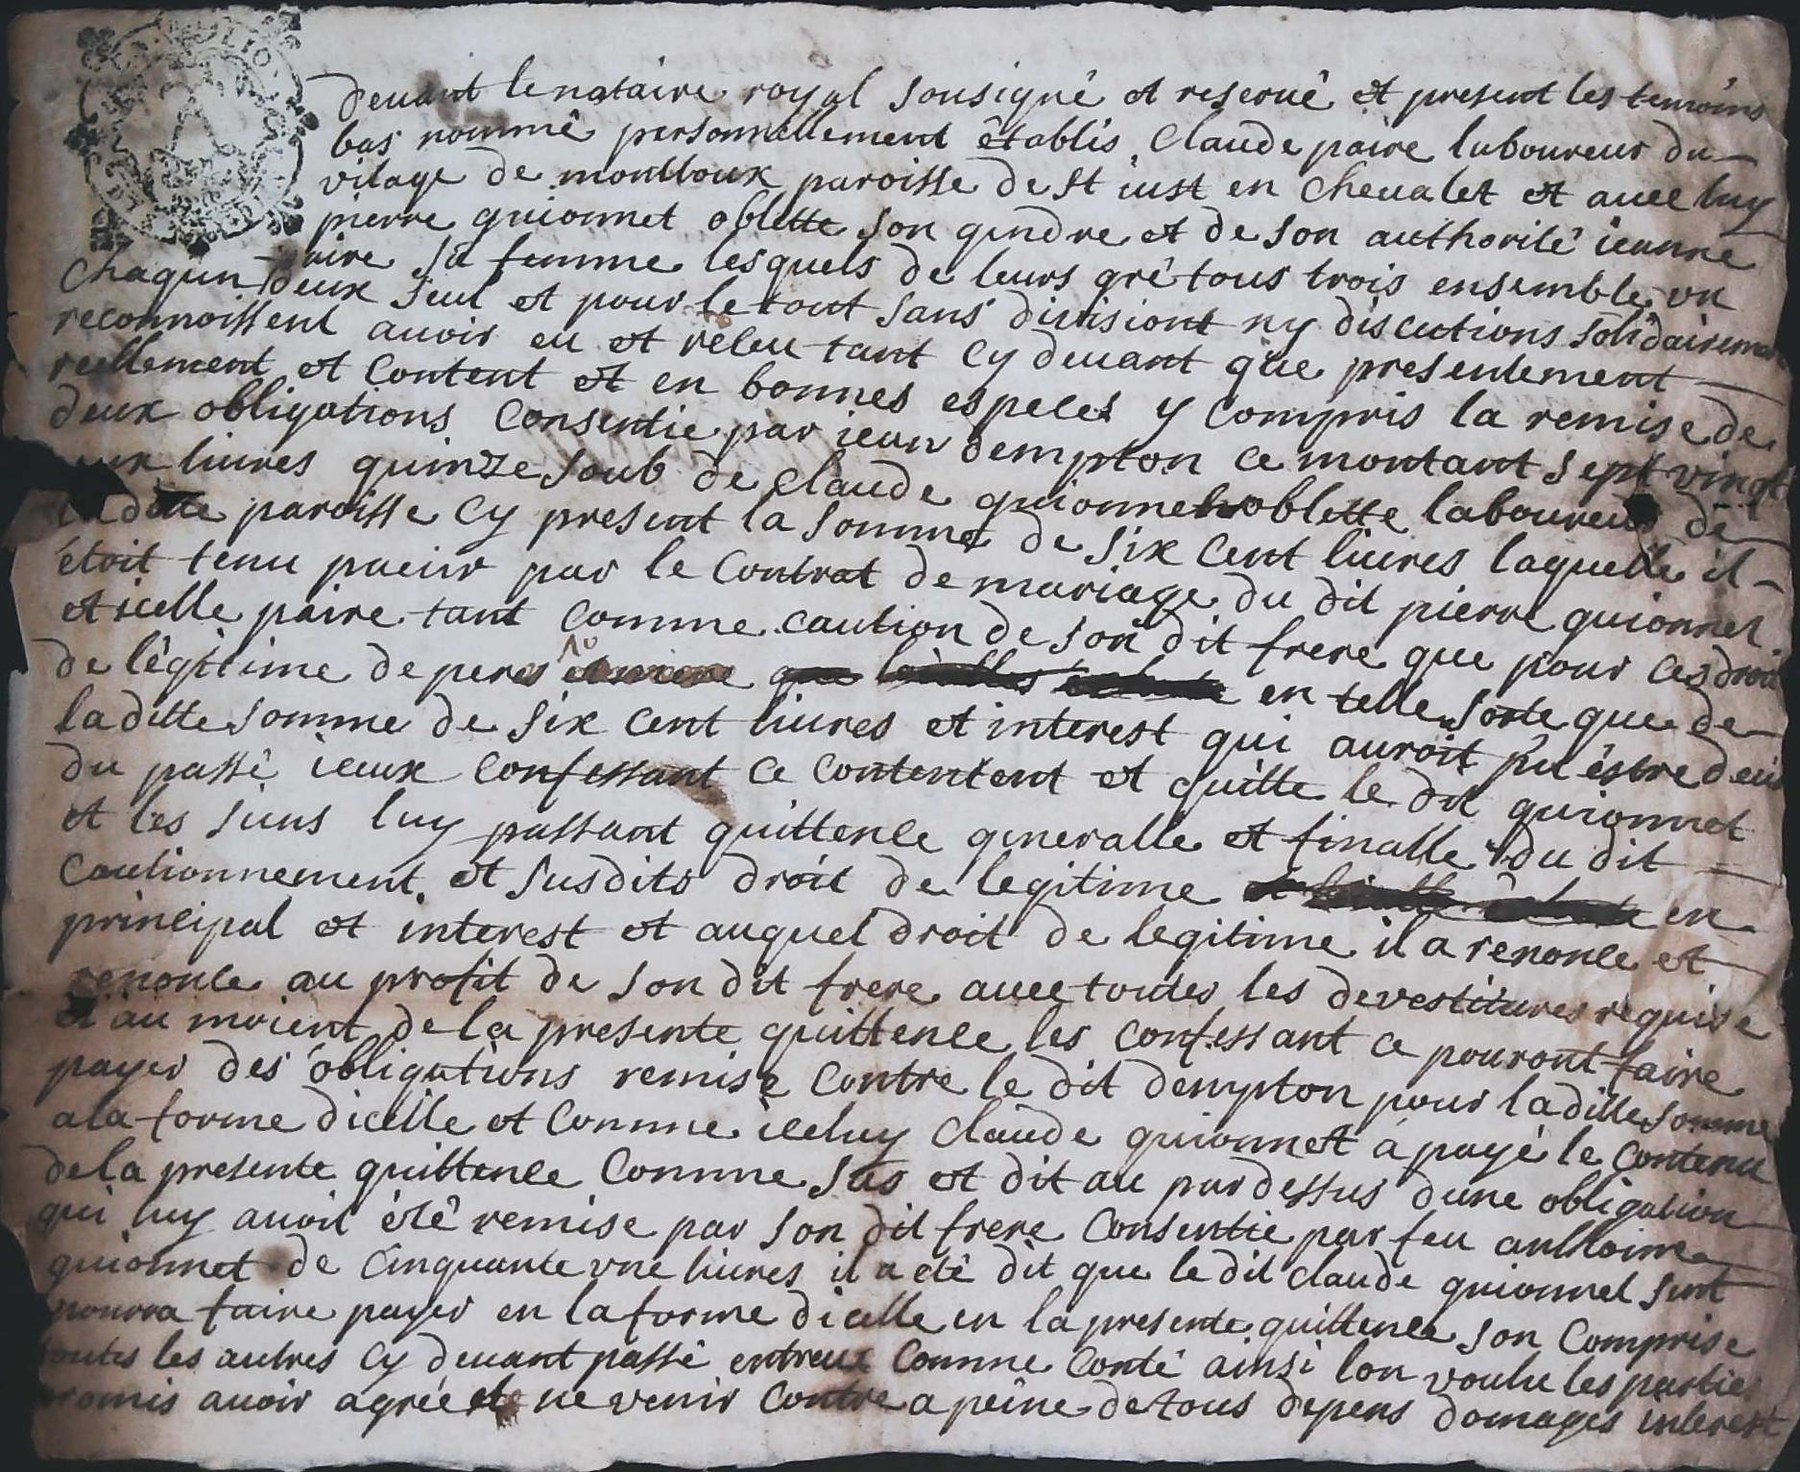 devant le notaire royal sousigné et reservé et present les temoins
bas nommé personnellement établis Claude paire laboureur du
vilage de montloux paroisse de st iust en chevalet et avec luy
pierre guionnet oblette son gendre et de son authorité ieanne
paire sa femme lesquels de leurs gré tous trois ensemble un
chaqun deux seul et pour le tout sans divisiont ny discutions solidairement
reconnoissent avoir eu et releu tant cy devant que presentement
reellement et content et en bonnes especes y compris la remise de
deux obligations consentie par iean dempton ce montant sept vingt
livres quinze soub de claude guionnet oblette laboureur de
ladite paroisse cy present la somme de six cent livres laquelle il
étoit tenu paeiir par le contrat de mariage du dit pierre guionnet
et icelle paire tant comme caution de son dit frere que pour ces droit
de légitime de peres et mere que en telle sorte que de
laditte somme de six cent livres et interest qui auroit pu éstre deüs
du passé ieux confessant ce contentent et quitte le dit guionnet
et les siens luy passant quittence generalle et finalle du dit
cautionnement et susdits droit de legitime et en
principal et interest et auquel droit de legitime il a renonce et
renonce au profit de son dit frere avec toutes les devestitures requise
et au moient de la presente quittence les confessant ce pouront faire
payer des obligations remise contre le dit dempton pour laditte somme
a la forme dicelle et comme iceluy claude guionnet a payé le contenu
de la presente quittence comme sus et dit au pardessus dune obligation
qui luy avoit été remise par son dit frere consentie par feu anthoine
guionnet de cinquante une livres il a été dit que le dit claude guionnet sent
pourra faire payer en la forme dicelle en la presente quittence son comprise
toutes les autres cy devant passé entreux comme conté ainsi lon voulu les parties
promis avoir agrée et ne venir contre a peine de tous depens domages interest